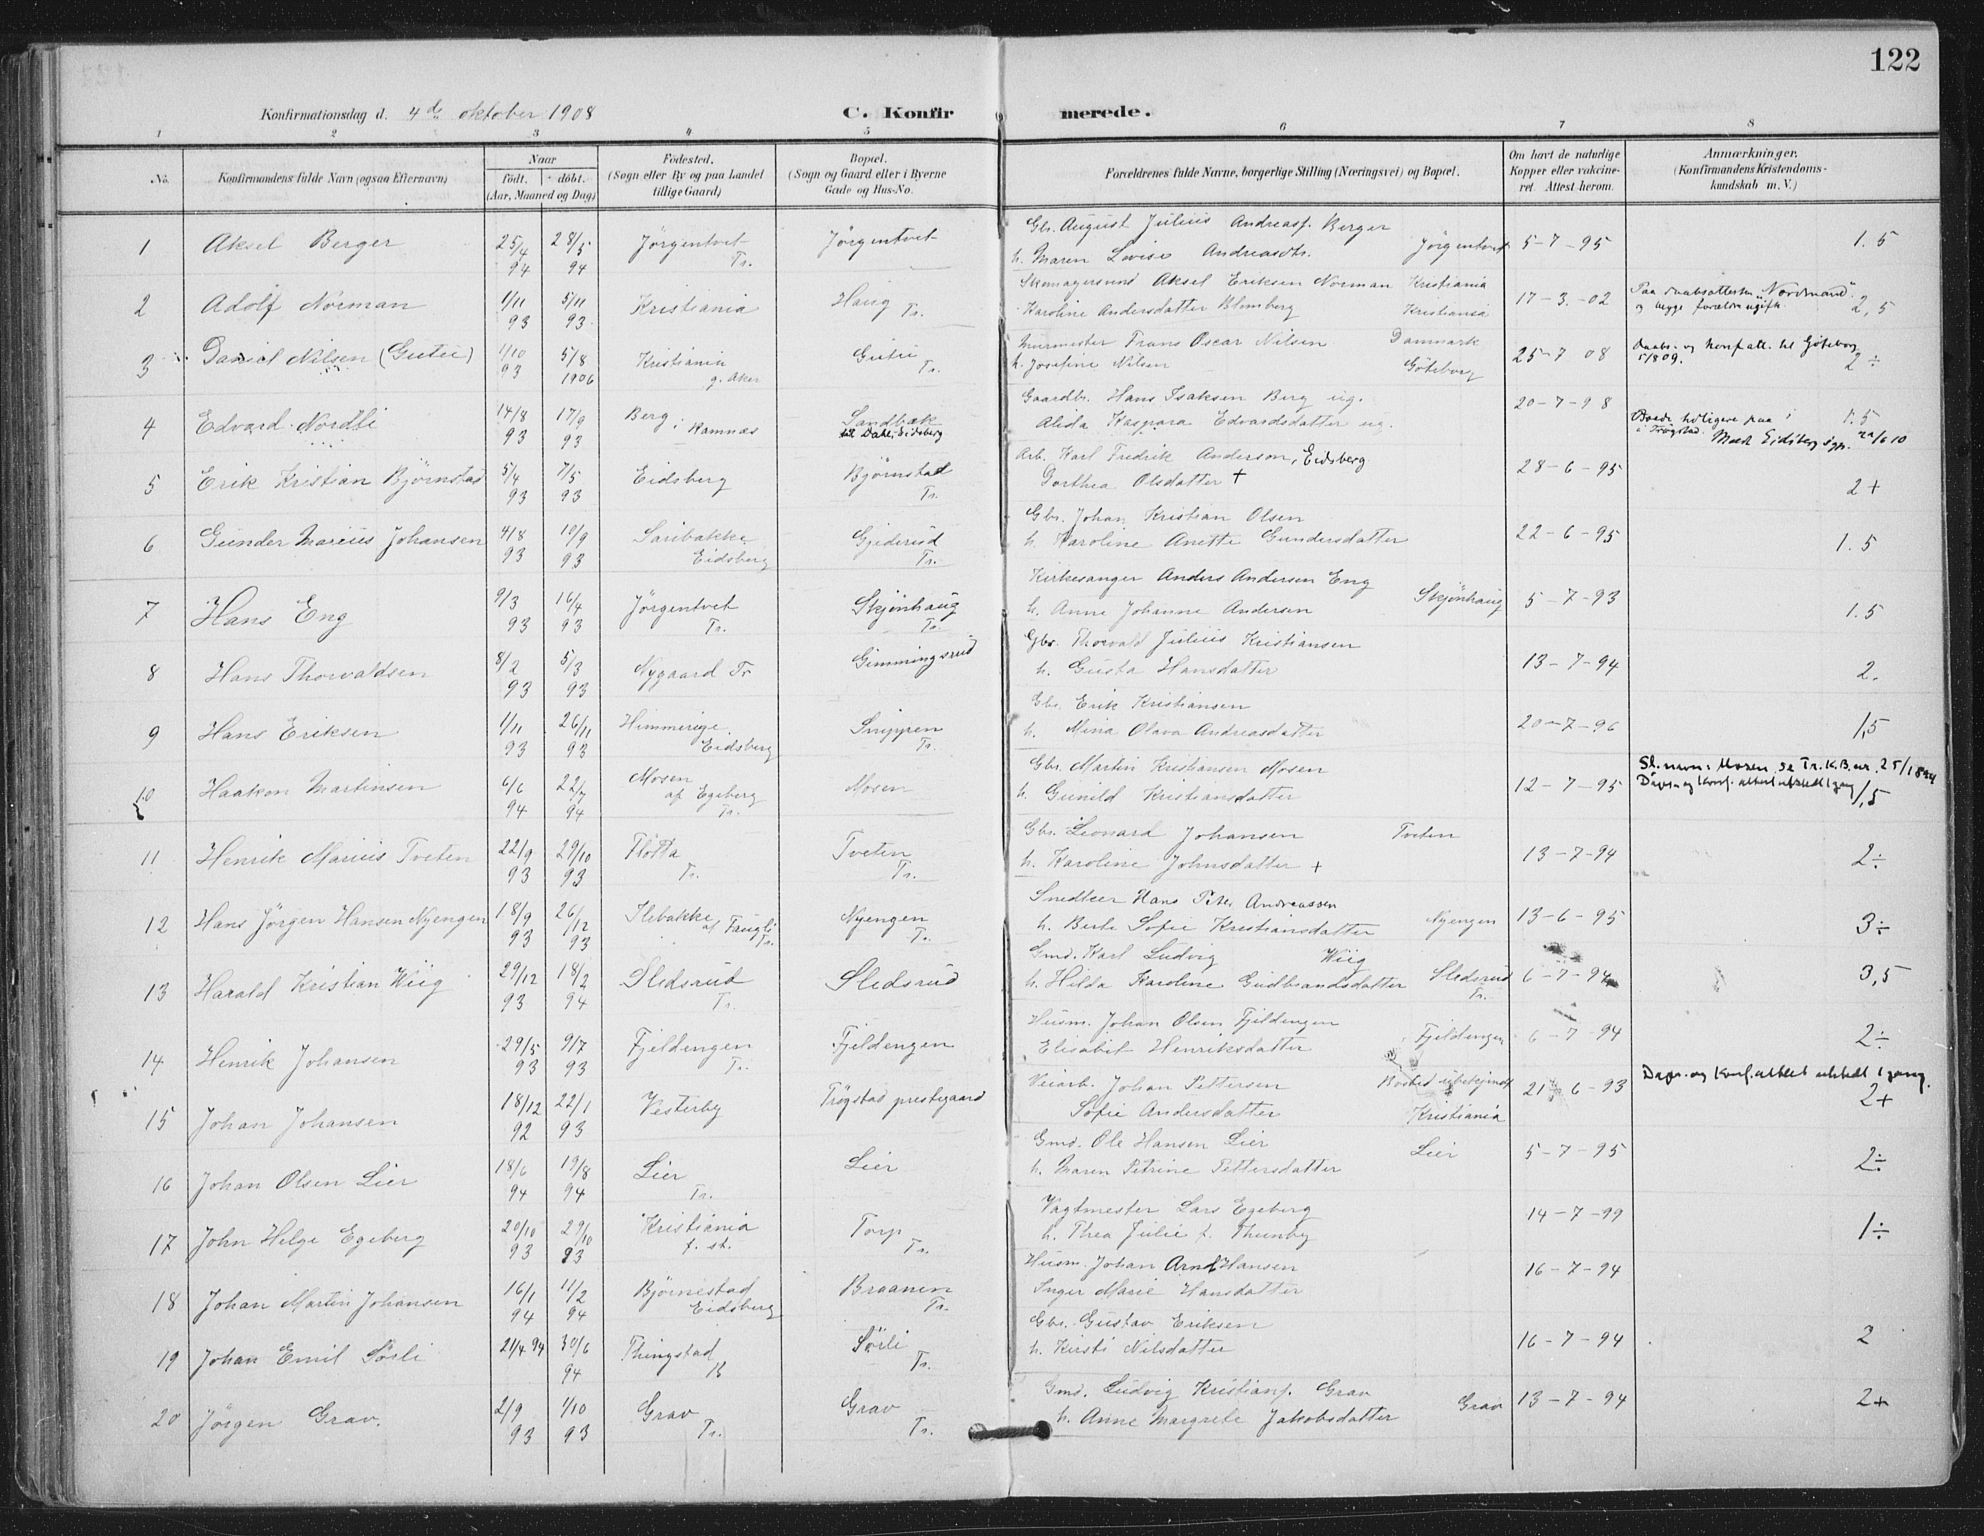 122
Konfirmationsdag d. 4de oktober 1908 C. Konfirmerede.
1 2 3 4 5 6 7 8
No. Konfirmandens fulde Navn (ogsaa Efternavn) Naar født. døbt. (Aar, Maaned og Dag) Födested. (Sogn eller By og paa Landet tillige Gaard) Bopæl. (Sogn og Gaard eller i Byerne Gade og Hus-No. Forældrenes fulde Navne, borgerlige Stilling (Næringsvei) og Bopæl. Om havt de naturlige Kopper eller vakcineret. Attest herom. Anmærkninger. (Konfirmandens Kristendomskundskab m. V.)
1 Aksel Berger 25/4 94 28/5 94 Jörgentvet Tr. Jørgentvet Gbr. August Julius Andreasf. Berger
h. Maren Lovise Andreasdtr. Jörgentvet 5-7-95 1.5
2 Adolf Norman 1/11 93 5/11 93. Kristiania Haug Tr. Skomagersvend Aksel Eriksen Norman Kristiania
Karoline Andersdatter Blomberg Kristiania 17-3-02 Paa daabsattesten "Nordmand" og begge forældre ugift. 2,5
3 Daniel Nilsen (Gutu) 1/10 93 5/8 1906 Kristiania g. Aker Gutu Tr. Murmester Frans Oscar Nilsen Danmark
h. Josefine Nilsen Göteborg 25-7 08 Daabs- og konf.att. til Göteborg 5/8 09. 2÷
4 Edvard Nordli 14/8 93 17/9 93 Berg i Ramnæs Sandbæk till Dahl, Eidsberg Gaardbr. Hans Isaksen Berg ug.
Alida Kaspara Edvardsdatter ug. 20-7-98 1.5
5 Erik Kristian Bjørnstad 5/4 93 7/5 93 Eidsberg Bjørnstad Tr. Arb. Karl Fredrik Anderson, Eidsberg
Dorthea Olsdatter + 28-6-95 2+
6 Gunder Marius Johansen 4/8 93 10/9 93 Saribakke Eidsberg Gjederud Tr. Gbr. Johan Kristian Olsen
h. Karoline Anette Gundersdatter 22-6-95 1.5
7 Hans Eng 9/3 93 16/4 93 Jörgentvet Tr. Skjönhaug Tr. Kirkesanger Anders Andersen Eng
h. Anne Johanne Andersen Skjönhaug 5-7-93 1.5
8 Hans Thorvaldsen 8/2 93 5/3 93 Nygaard Tr Gimmingsrud Gbr. Thorvald Julius Kristiansen
h. Gusta Hansdatter 13-7-94 2.
9 Hans Eriksen 1/11 93 26/11 93 Himmerige Eidsberg Snippen Tr. Gbr. Erik Kristiansen
h. Mina Olava Andreasdatter 20-7-96 1,5
10 Haakon Martinsen 6/6 94 22/7 94 Mosen af Egeberg Tr. Mosen Gbr. Martin Kristiansen Mosen
h. Gunild Kristiansdatter 12-7-95 Sl.navn: Mosen, se Tr.K.B. nr. 25/1894 Daps- og konf.attest utstedt 1 gang 1,5
11 Henrik Marius Tveten 22/9 93 29/10 93 Flötta Tr. Tveten Tr. Gbr. Leonard Johansen Tveten
h. Karoline Johnsdatter + 13-7-94 2÷
12 Hans Jörgen Hansen Nyengen 18/9 93 26/12 93 Ilebakke af Fangli Tr. Nyengen Tr. Snedker Hans Peter Andreassen
h. Berte Sofie Kristiansdatter Nyengen 13-6-95 3÷
13 Harald Kristian Wiig 29/12 93 18/2 94 Sledsrud Tr. Sledsrud Gmd. Karl Ludvig Wiig
h. Hilda Karoline Gudbrandsdatter Sledsrud Tr. 6-7-94 3,5
14 Henrik Johansen 29/5 93 9/7 93 Fjeldengen Tr. Fjeldengen Husm. Johan Olsen Fjeldengen
Elisabet Henriksdatter Fjeldengen 6-7-94 2÷
15 Johan Johansen 18/12 92 22/1 93 Vesterby Trøgstad prestegaard Veiarb. Johan Pettersen Bosted ubekjendt
Sofie Andersdatter Kristiania 21-6-93 Daps- og konf.attest utstedt 1 gang. 2+
16 Johan Olsen Lier 18/6 94 19/8 94 Lier Tr. Lier Gmd. Ole Hansen Lier Lier
h. Maren Petrine Pettersdatter 5-7-95 2÷
17 John Helge Egeberg 20/10 93 29/10 93 Kristiania f. st. Torp Tr. Vagtmester Lars Egeberg
h. Thea Julie f. Thunby 14-7-99 1÷
18 Johan Martin Johansen 16/1 94 11/2 94 Bjørnestad Eidsberg Braanen Tr. Husm. Johan Arnt Hansen
Inger Marie Hansdatter 16-7-94
19 Johan Emil Sörli 21/4 94 30/6 94 Thingstad Sörli Tr. Gbr. Gustav Eriksen
h. Kirsti Nilsdatter 16-7-94 2
20 Jörgen Grav. 2/9 93 1/10 93 Grav Tr. Grav Tr. Gmd. Ludvig Kristianf. Grav
h. Anne Margrete Jakobsdatter Grav 13-7-94 2+